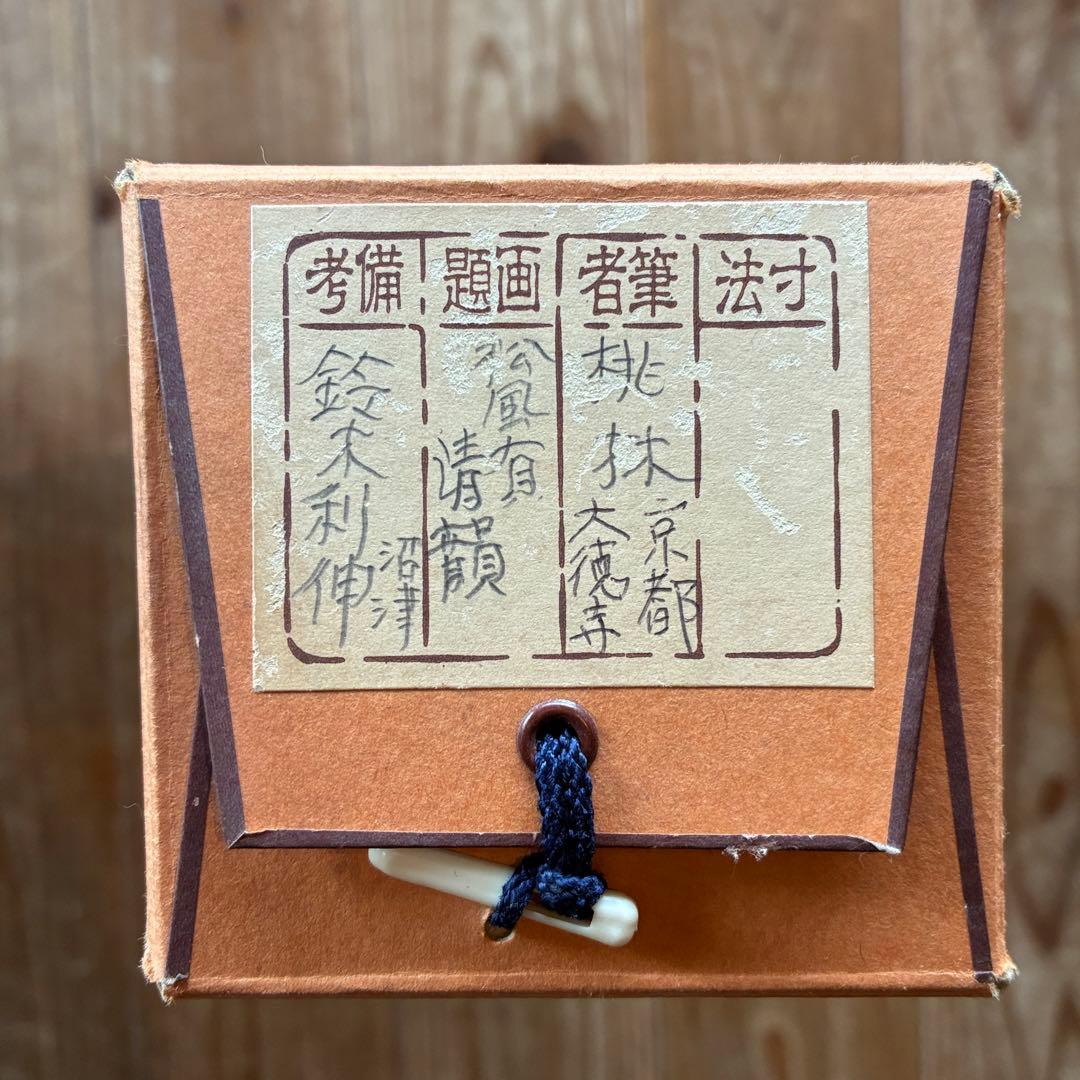 寸法
筆者
桃林
京都
大徳寺
画題
松風有
清韻
備考
鈴木利伸
沼津